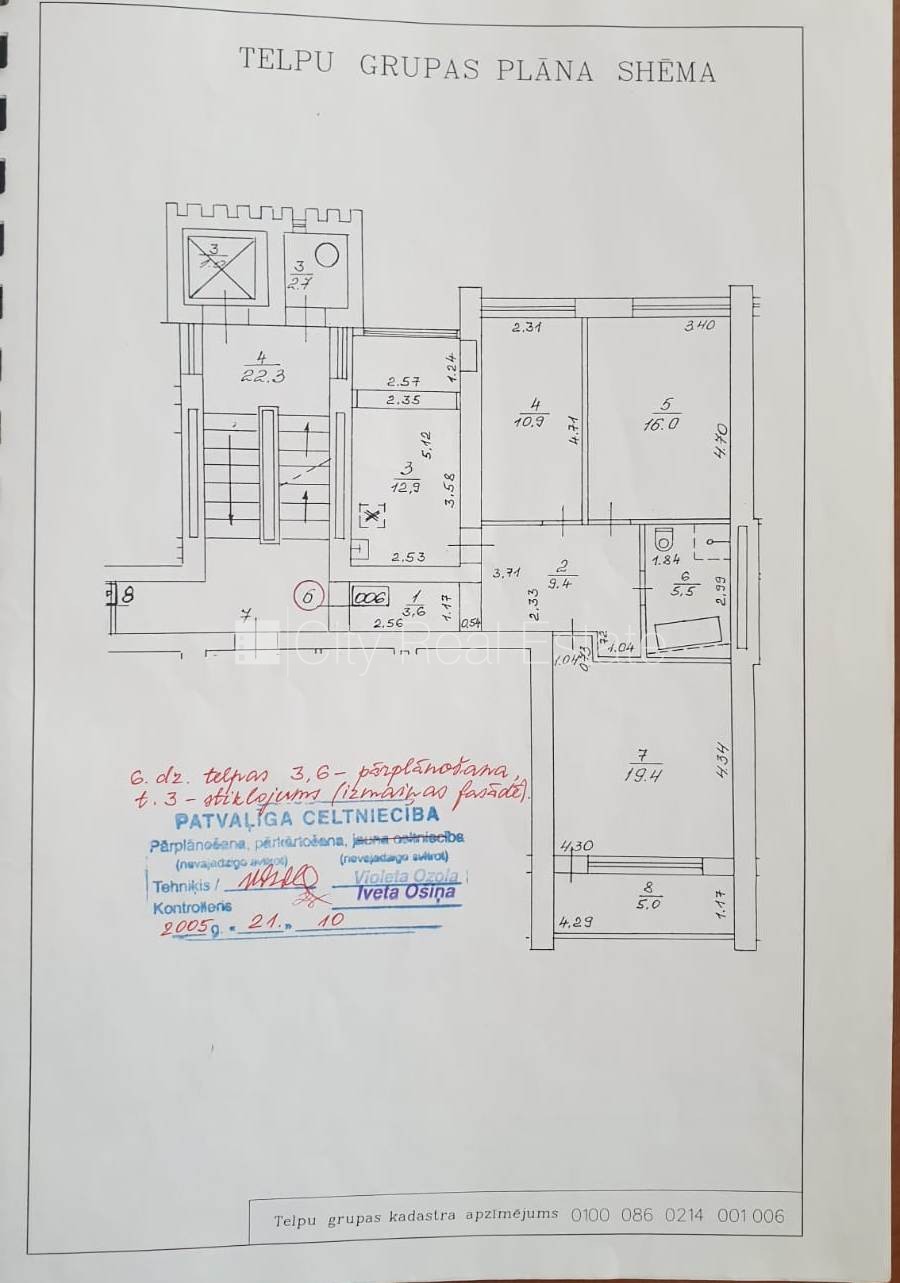 TELPU GRUPAS PLĀNA SHĒMA
3
3
2.7
4
22.3
2.57
1.24
2.35
2.31
3.40
4
10.9
4.71
5
16.0
4.70
5.12
3
12,9
3.58
2.53
3.71
2
9.4
2.33
1.84
6
5,5
2,99
8
7
6
006
1
3,6
1.17
2.56
0,54
City Real Estate
1.04
0,73
72
1.04
7
19.4
4,34
4,30
8
5.0
1.17
4.29
6. dz. telpas 3,6 - pārplānošana,
t. 3 - stiklojums (izmaiņas fasādē).
PATVAĻĪGA CELTNIECĪBA
Pārplānošana, pārkārtošana, jauna celtniecība
(nevajadzīgo svītrot) (nevajadzīgo svītrot)
Tehniķis / Violeta Ozola
Iveta Ošiņa
Kontrolieris
2005 g. " 21. " 10
Telpu grupas kadastra apzīmējums 0100 086 0214 001 006